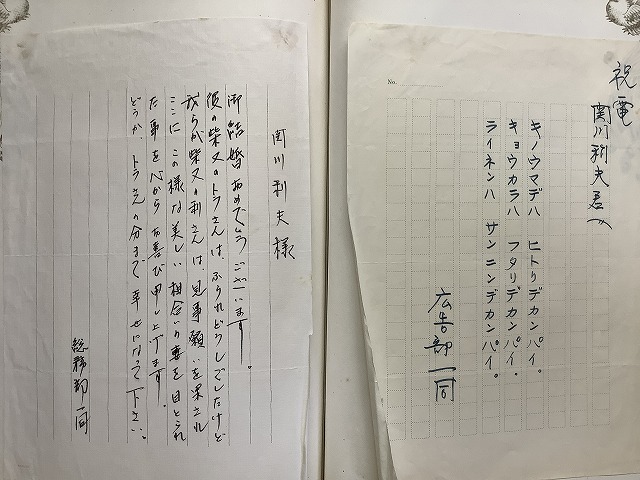 No.
祝電
関川利夫君へ
キノウマデハ ヒトリデカンパイ。
キョウカラハ フタリデカンパイ。
ライネンハ サンニンデカンパイ。
広告部一同
関川利夫様
御結婚おめでとうございます。
彼の柴又のトラさんは、ふられどうしでしたけど
我らが柴又の利さんは、見事願いを果され
ここに この様な美しい相合いの妻を目とられ
た事を心からお喜び申し上げます。
どうか、トラさんの分まで幸せになって下さい。
総務部一同